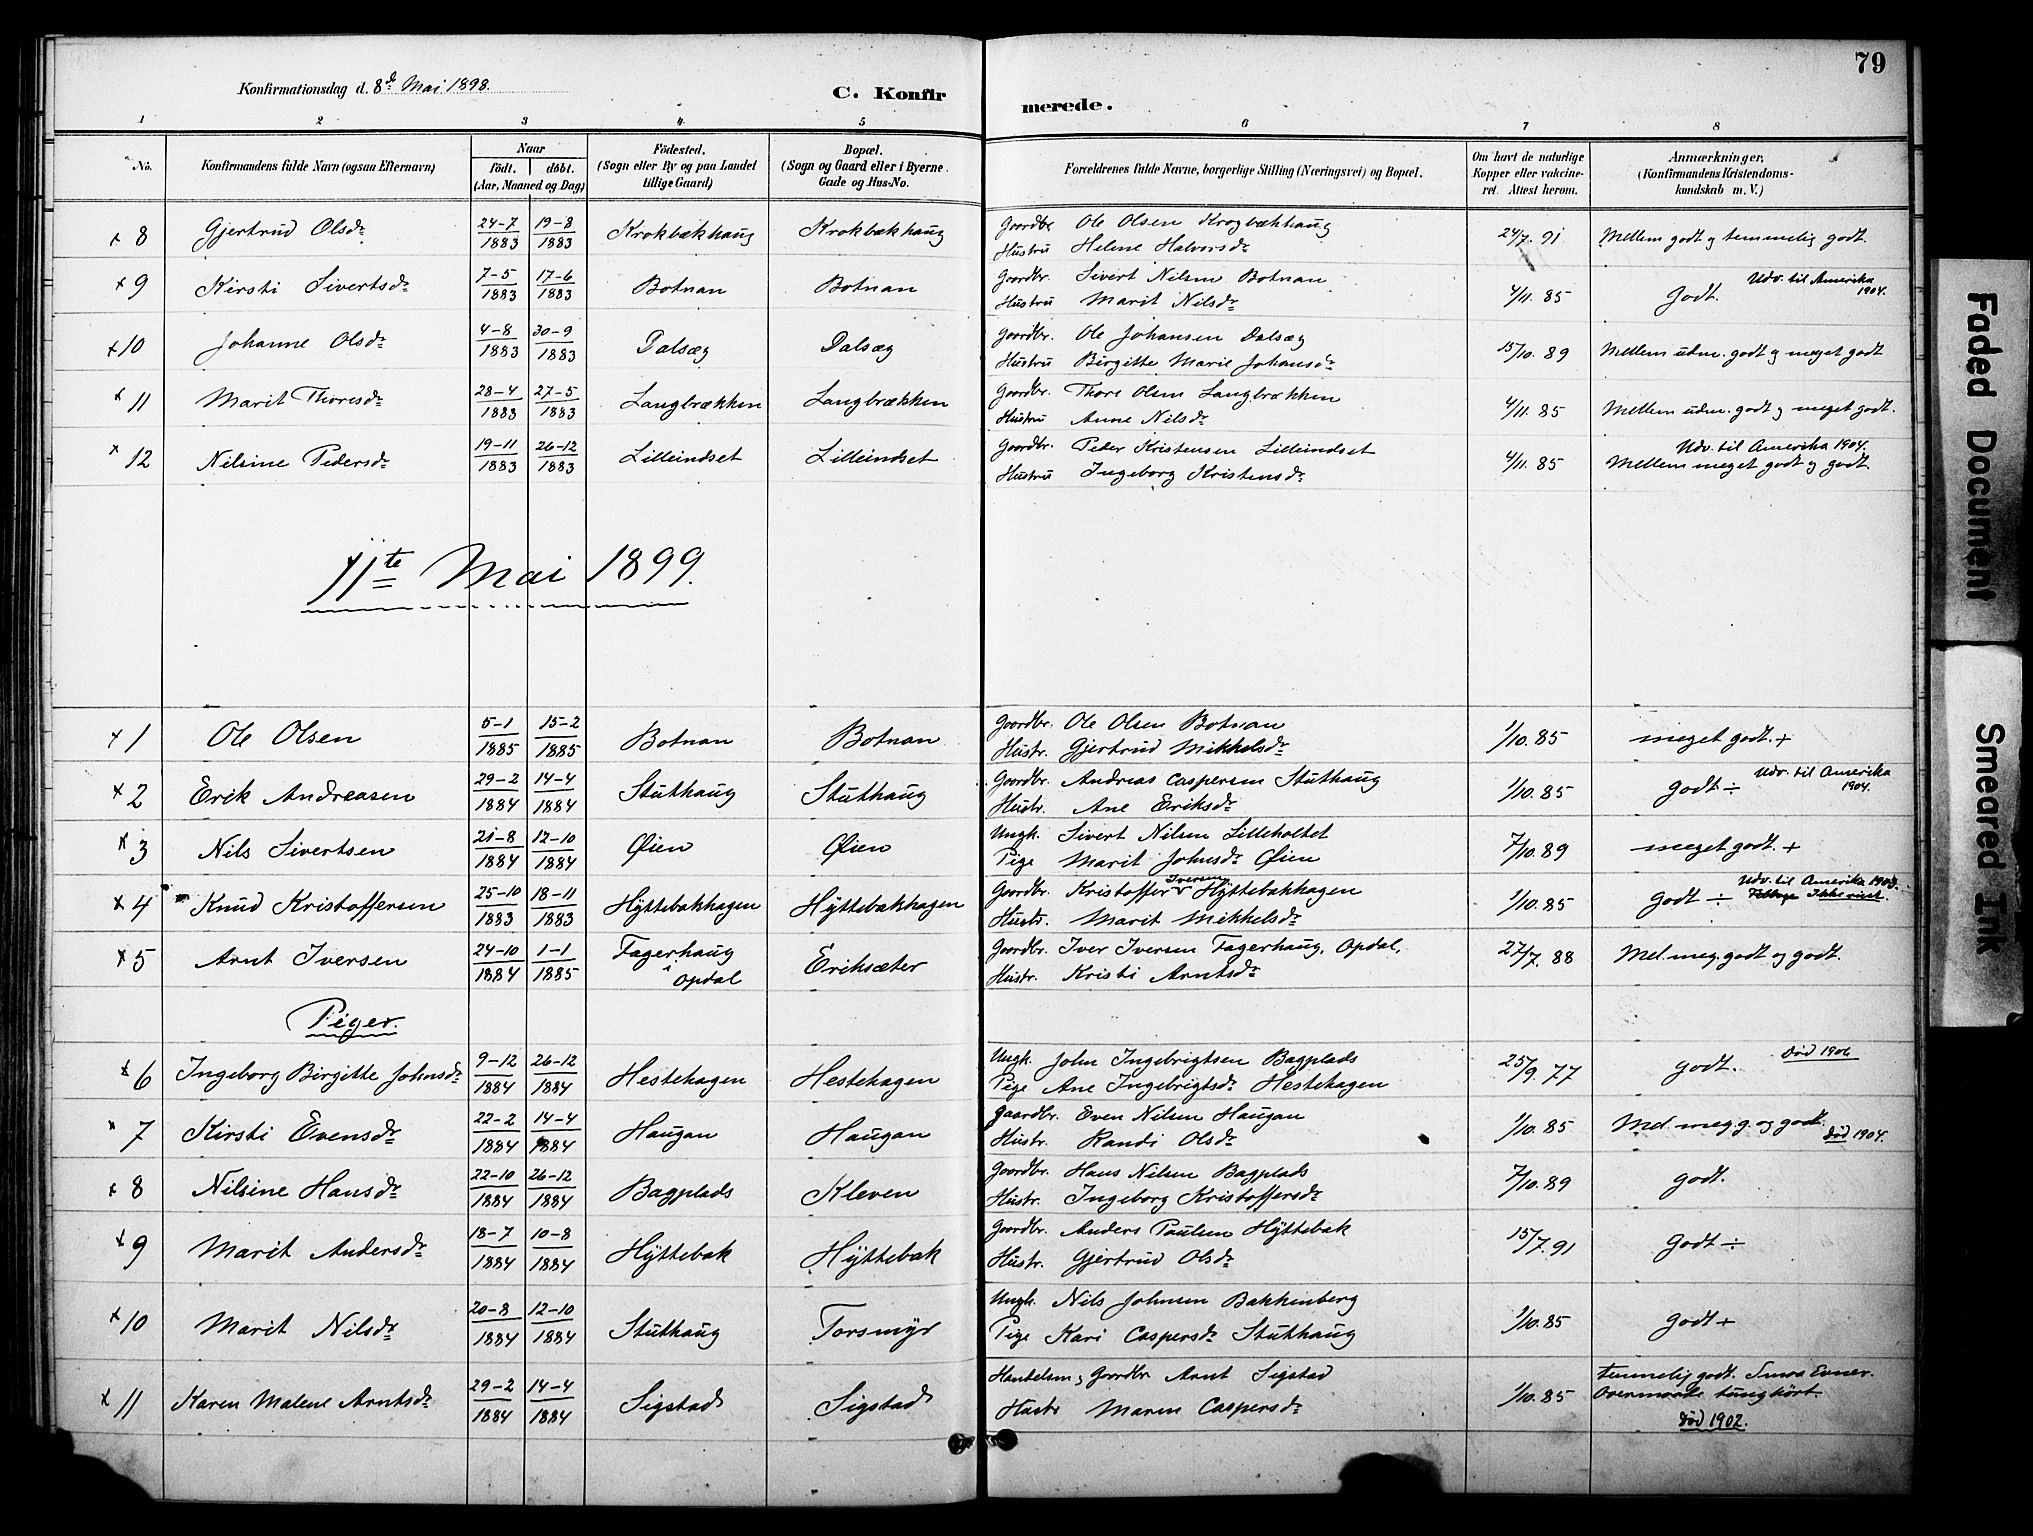 79
Konfirmationsdag d. 8de Mai 1898.
C. Konfirmerede.
1 2 3 4 5 6 7 8
No.
Konfirmandens fulde Navn (ogsaa Efternavn)
Naar
födt. döbt.
(Aar, Maaned og Dag)
Födested.
(Sogn eller By og paa Landet
tillige Gaard)
Bopæl.
(Sogn og Gaard eller i Byerne
Gade og Hus-No.
Forældrenes fulde Navne, borgerlige Stilling (Næringsvei) og Bopæl.
Om havt de naturlige
Kopper eller vakcine-
ret. Attest herom.
Anmærkninger,
(Konfirmandens Kristendoms-
kundskab m. V.)
x 8 Gjertrud Olsdr 24-7 1883 19-8 1883 Krokbækhaug Krokbækhaug Gaardbr. Ole Olsen Krogbækhaug 24/7. 91 Mellem godt og temmelig godt.
Hustru Helene Halvorsdr
x 9 Kirsti Sivertsdr 7-5 1883 17-6 1883 Botnan Botnan Gaardbr. Sivert Nilsen Botnan 4/11. 85 Godt. Udv. til Amerika 1904.
Hustru Marit Nilsdr
x 10 Johanne Olsdr 4-8 1883 30-9 1883 Dalsæg Dalsæg Gaardbr. Ole Johansen Dalsæg 15/10. 89 Mellem udm. godt og meget godt
Hustru Birgitte Marie Johansdr
x 11 Marit Thoresdr 28-4 1883 27-5 1883 Langbrækken Langbrækken Gaardbr. Thore Olsen Langbrækken 4/11. 85 Mellem udm. godt og meget godt.
Hustru Anne Nilsdr
x 12 Nilsine Pedersdr 19-11 1883 26-12 1883 Lilleindset Lilleindset Gaardbr. Peder Kristensen Lilleindset 4/11. 85 Udv. til Amerika 1904.
Hustru Ingeborg Kristensdr Mellem meget godt og godt.
11te Mai 1899.
x 1 Ole Olsen 5-1 1885 15-2 1885 Botnan Botnan Gaardbr. Ole Olsen Botnan 1/10. 85 meget godt. +
Hustr. Gjertrud Mikkelsdr
x 2 Erik Andreasen 29-2 1884 14-4 1884 Stuthaug Stuthaug Gaardbr. Andreas Caspersen Stuthaug 1/10. 85 godt ÷ Udv. til Amerika 1904.
Hustr. Ane Eriksdr
x 3 Nils Sivertsen 21-8 1884 12-10 1884 Øien Øien Ungk. Sivert Nilsen Lilleholtet 7/10. 89 meget godt. +
Pige Marit Johnsdr Øien
x 4 Knud Kristoffersen 25-10 1883 18-11 1883 Hÿttebakhagen Hÿttebakhagen Gaardbr. Kristoffer Iversen Hÿttebakhagen 1/10. 85 godt ÷ Udv. til Amerika 1903.
Hustr. Marit Mikkelsdr
x 5 Arnt Iversen 24-10 1884 1-1 1885 Fagerhaug i Opdal Eriksæter Gaardbr. Iver Iversen Fagerhaug, Opdal. 27/7. 88 Mel. meg. godt og godt.
Hustr. Kristi Arntsdr
Piger.
x 6 Ingeborg Birgitte Johnsdr 9-12 1884 26-12 1884 Hestehagen Hestehagen Ungk. John Ingebrigtsen Bagplads 25/9. 77 godt. Død 1906
Pige Ane Ingebrigtsdr Hestehagen
x 7 Kirsti Evensdr 22-2 1884 14-4 1884 Haugan Haugan Gaardbr. Even Nilsen Haugan 1/10. 85 Mel. meg. g. og godt. død 1904.
Hustr. Randi Olsdr
x 8 Nilsine Hansdr 22-10 1884 26-12 1884 Bagplads Kleven Gaardbr. Hans Nilsen Bagplads 7/10. 89 godt.
Hustr. Ingeborg Kristoffersdr
x 9 Marit Andersdr 18-7 1884 10-8 1884 Hÿttebak Hÿttebak Gaardbr. Anders Paulsen Hÿttebak 15/7. 91 Godt ÷
Hustr. Gjertrud Olsdr
x 10 Marit Nilsdr 20-8 1884 12-10 1884 Stuthaug Torsmÿr Ungk. Nils Johnsen Bakkenberg 1/10. 85 Godt +
Pige Kari Caspersdr Stuthaug
x 11 Karen Malene Arntsdr 29-2 1884 14-4 1884 Sigstad Sigstad Handelsm. & Gaardbr. Arnt Sigstad 1/10. 85 temmelig godt. Smaa Evner.
Hustr. Maren Caspersdr Overmaade tunghørt.
død 1902.
Faded Document
Smeared Ink